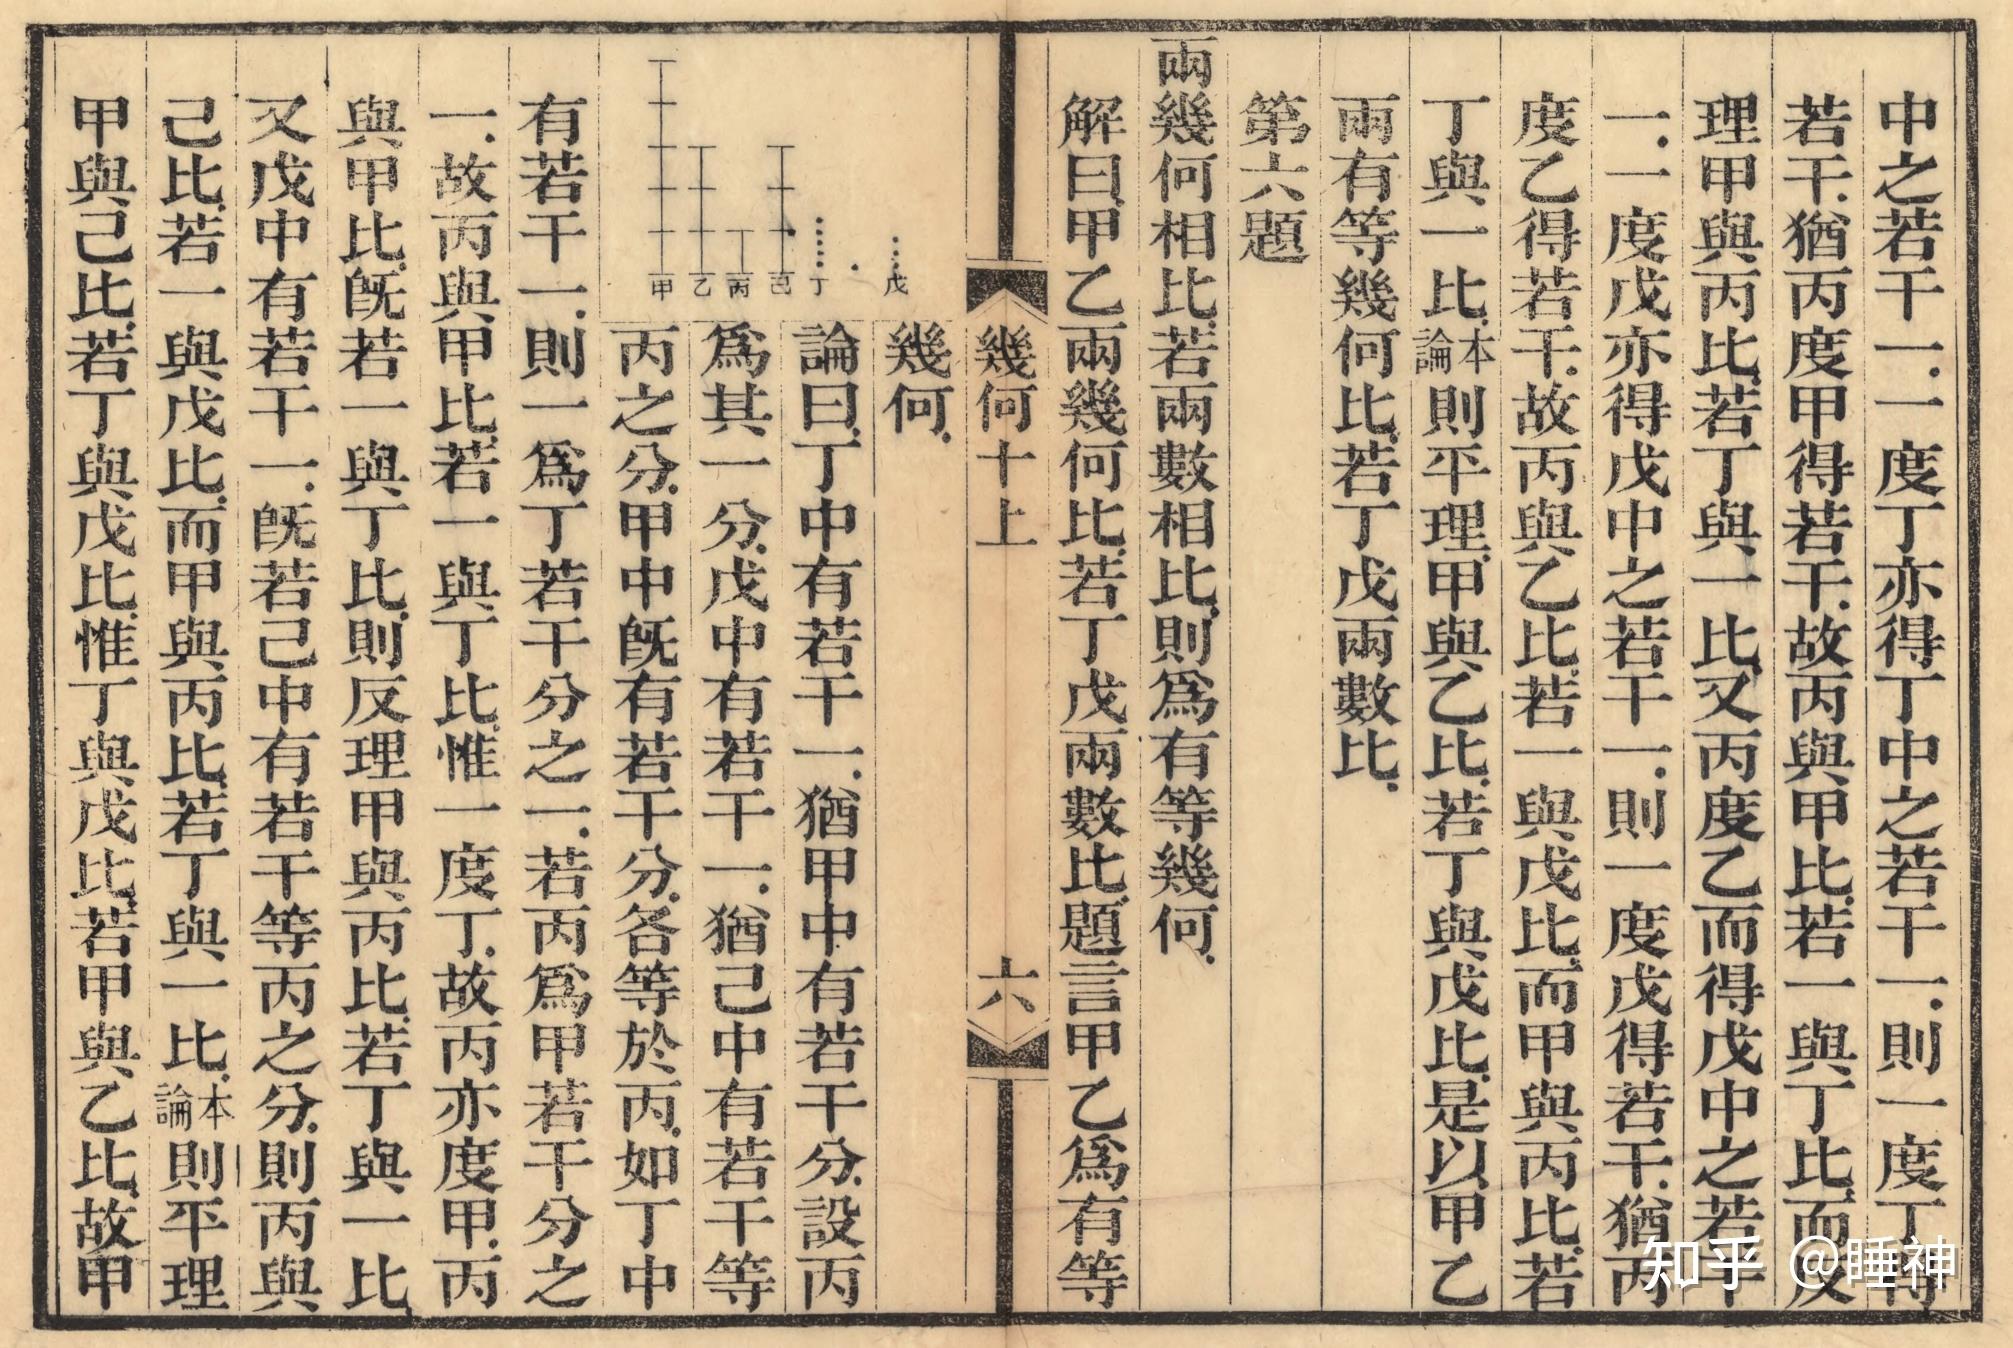 中之若干一.一度丁亦得丁中之若干一.則一度丁得
若干.猶丙度甲得若干.故丙與甲比.若一與丁比.而反
理甲與丙比.若丁與一比.又丙度乙而得戊中之若干
一.一度戊亦得戊中之若干一.則一度戊得若干.猶丙
度乙得若干.故丙與乙比.若一與戊比.而甲與丙比.若
丁與一比.本論則平理.甲與乙比.若丁與戊比.是以甲乙
兩有等幾何比.若丁戊兩數比.
第六題
兩幾何相比.若兩數相比.則爲有等幾何.
解曰.甲乙兩幾何比.若丁戊兩數比.題言甲乙爲有等
幾何十上 六
戊 丁 己 丙 乙 甲
幾何.
論曰.丁中有若干一.猶甲中有若干分.設丙
爲其一分.戊中有若干一.猶己中有若干等
丙之分.甲中旣有若干分.各等於丙.如丁中
有若干一.則一爲丁若干分之一.若丙爲甲若干分之
一.故丙與甲比.若一與丁比.惟一度丁.故丙亦度甲.丙
與甲比.旣若一與丁比.則反理甲與丙比.若丁與一比
又戊中有若干一.旣若己中有若干等丙之分.則丙與
己比.若一與戊比.而甲與丙比.若丁與一比.本論則平理
甲與己比.若丁與戊比.惟丁與戊比.若甲與乙比.故甲
知乎 @睡神